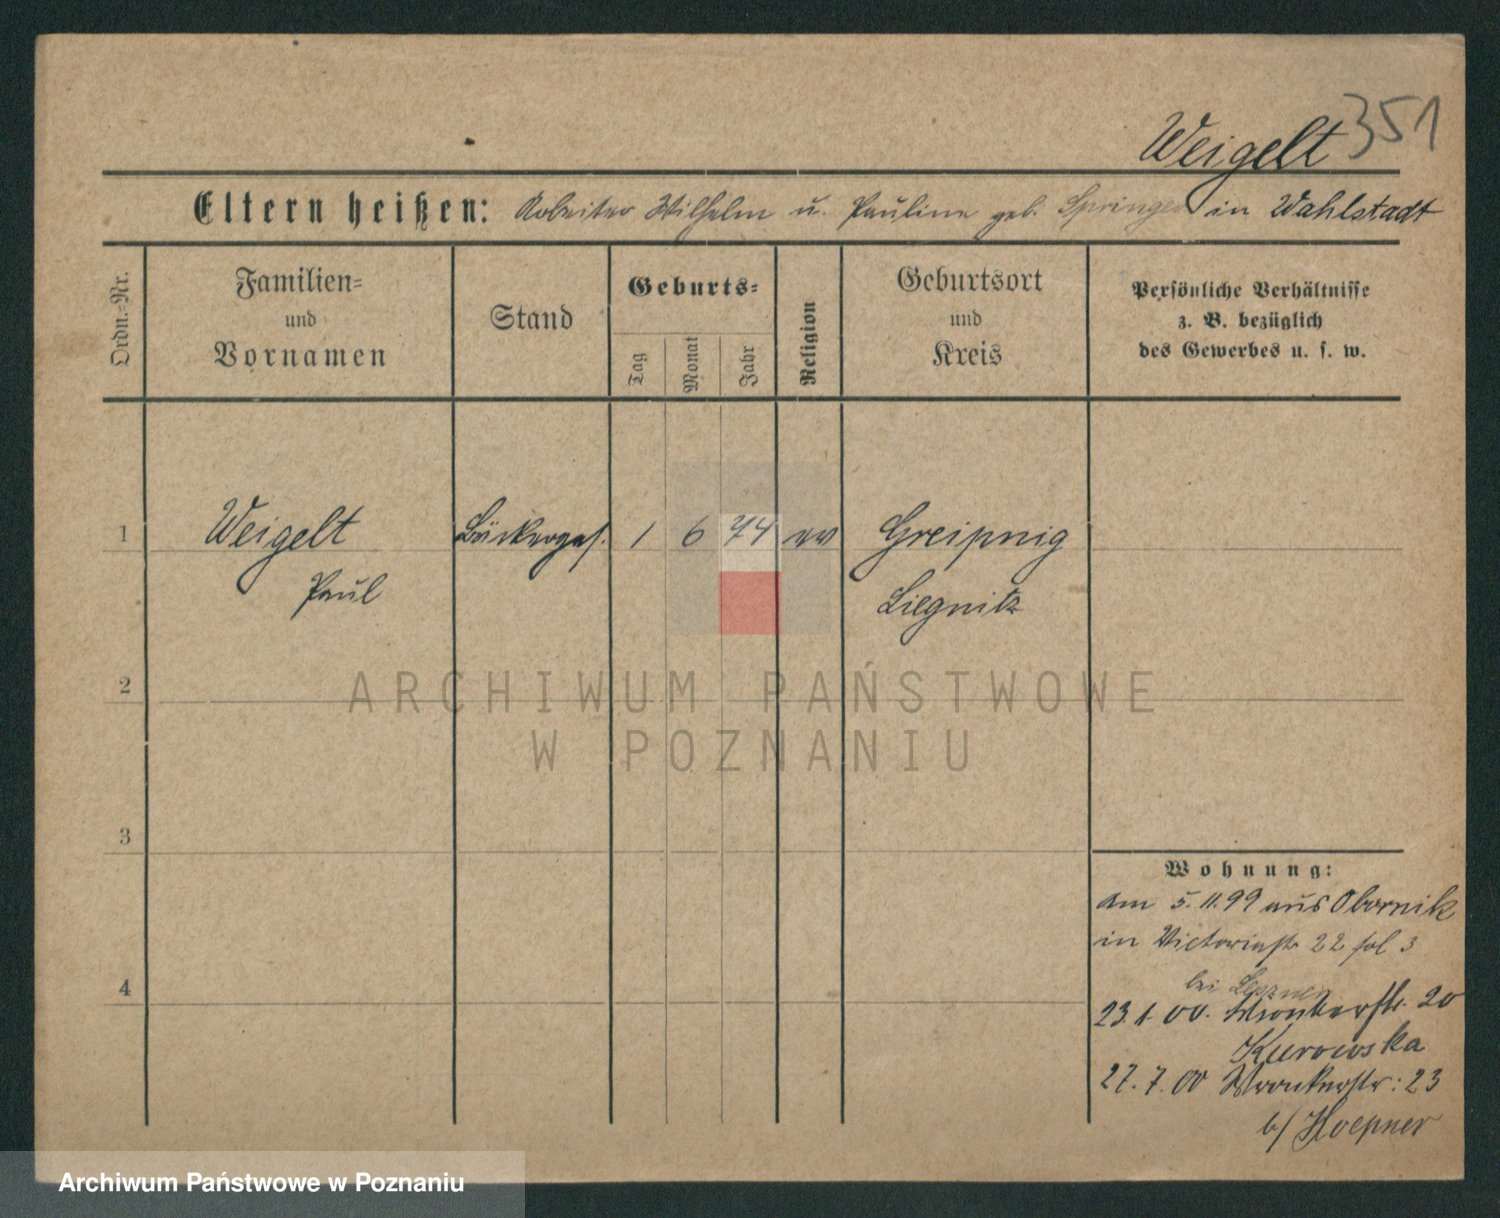 Weigelt 351
Eltern heißen: Arbeiter Wilhelm u. Pauline geb. Springer in Wahlstadt
Ordn.-Nr.
Familien-
und
Vornamen
Stand
Geburts-
Tag
Monat
Jahr
Religion
Geburtsort
und
Kreis
Persönliche Verhältnisse
z. B. bezüglich
des Gewerbes u. s. w.
1 Weigelt Bäckerges. 1 6 74 ev Greipnig
Paul Liegnitz
2
ARCHIWUM PAŃSTWOWE
W POZNANIU
3
4
Wohnung:
am 5.11.99 aus Obornik
in Victoriastr 22 fol 3
bei
23.1.00. Wronkerstr. 20
Kurowska
27.7.00 Wronkerstr: 23
b/ Hoepner
Archiwum Państwowe w Poznaniu